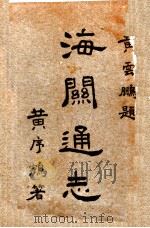 黄雲鵬題
海關通志
黃序鵷著